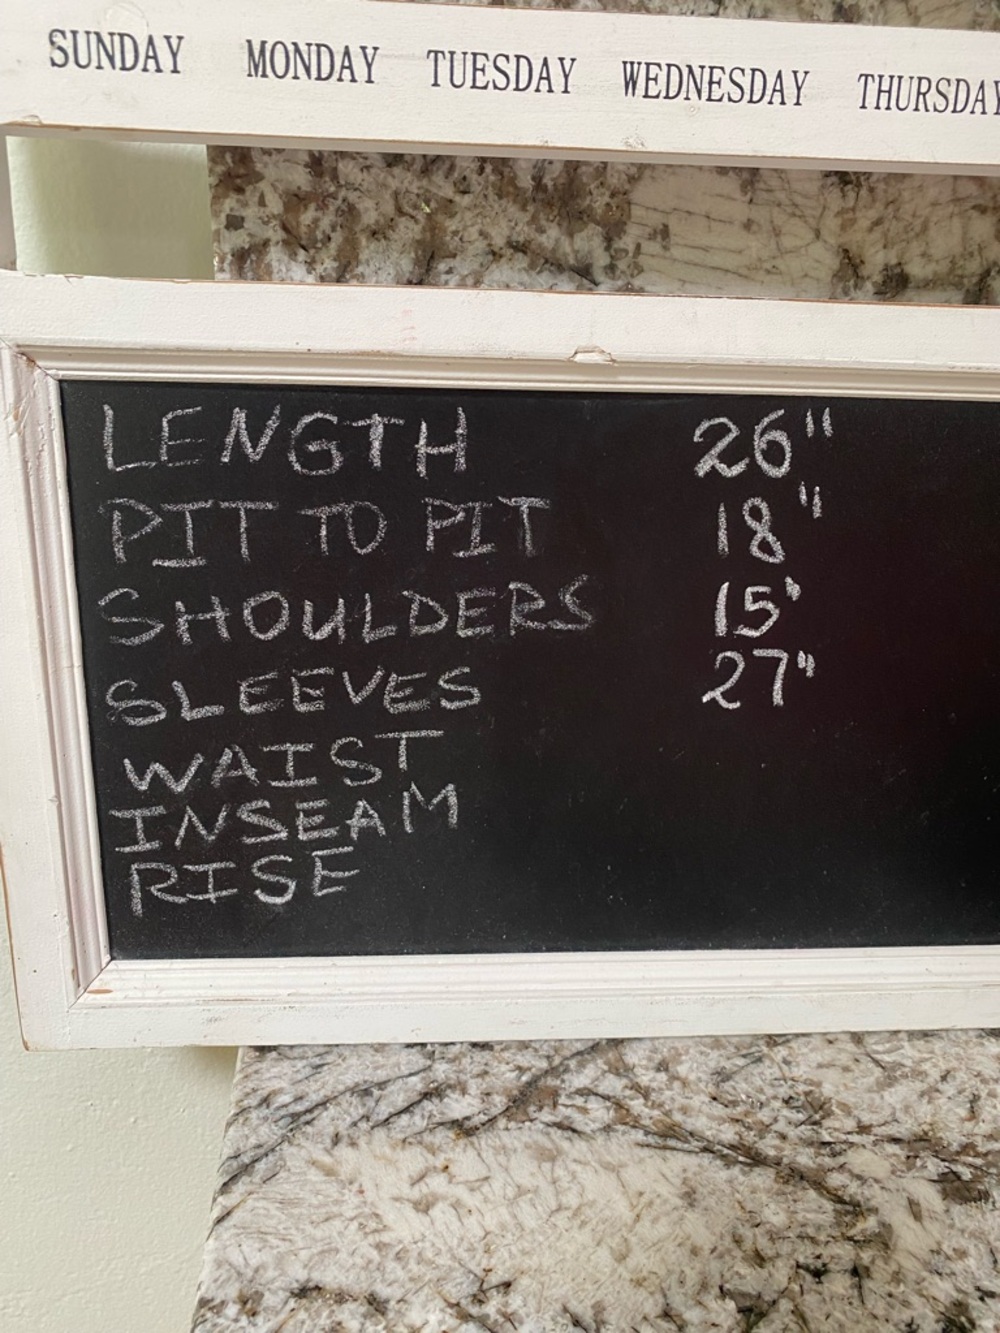 SUNDAY MONDAY TUESDAY WEDNESDAY THURSDAY
LENGTH 26"
PIT TO PIT 18"
SHOULDERS 15'
SLEEVES 27"
WAIST
INSEAM
RISE